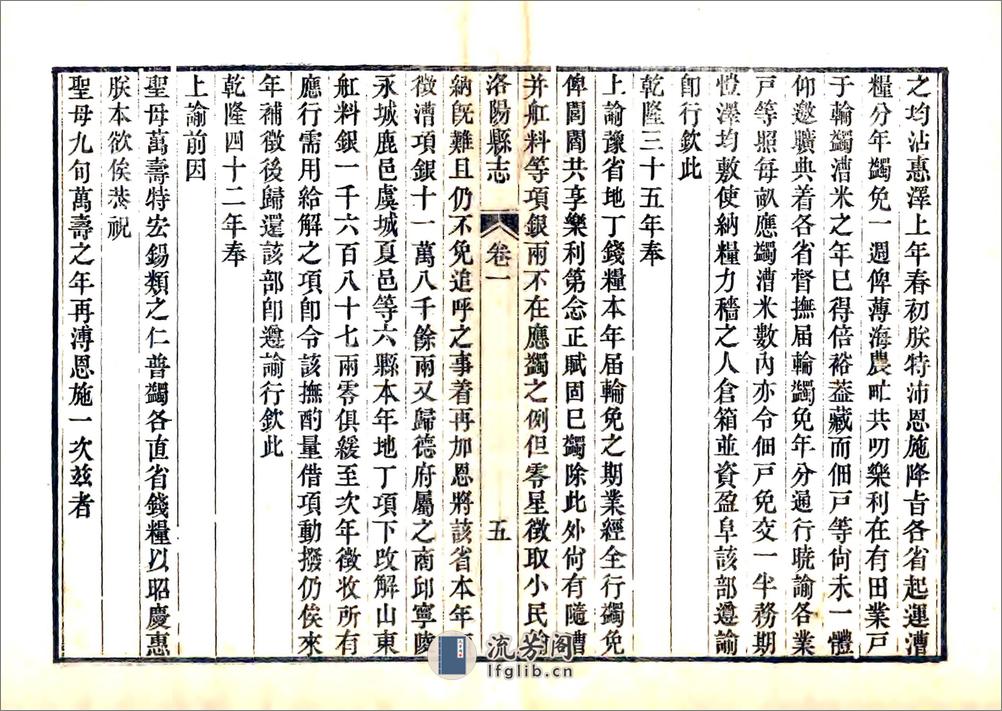 之均沾惠澤上年春初朕特沛恩施降旨各省起運漕
糧分年蠲免一週俾薄海農甿共叨樂利在有田業戸
于輪蠲漕米之年巳得倍裕葢藏而佃戸等尙未一體
仰邀曠典着各省督撫届輪蠲免年分通行曉諭各業
戸等照每畝應蠲漕米數內亦令佃戸免交一半務期
愷澤均敷使納糧力穡之人倉箱並資盈阜該部遵諭
卽行欽此
乾隆三十五年奉
上諭豫省地丁錢糧本年届輪免之期業經全行蠲免
俾閭閻共享樂利第念正賦固巳蠲除此外尙有隨漕
并舡料等項銀兩不在應蠲之例但零星徵取小民
洛陽縣志 卷一 五
納旣難且仍不免追呼之事着再加恩將該省本年
徵漕項銀十一萬八千餘兩又歸德府屬之商邱寧陵
永城鹿邑虞城夏邑等六縣本年地丁項下攺解山東
舡料銀一千六百八十七兩零俱緩至次年徵收所有
應行需用給解之項卽令該撫酌量借項動撥仍俟來
年補徵後歸還該部卽遵諭行欽此
乾隆四十二年奉
上諭前因
聖母萬壽特宏錫類之仁普蠲各直省錢糧以昭慶惠
朕本欲俟恭祝
聖母九旬萬壽之年再溥恩施一次兹者
流芳閣
lfglib.cn